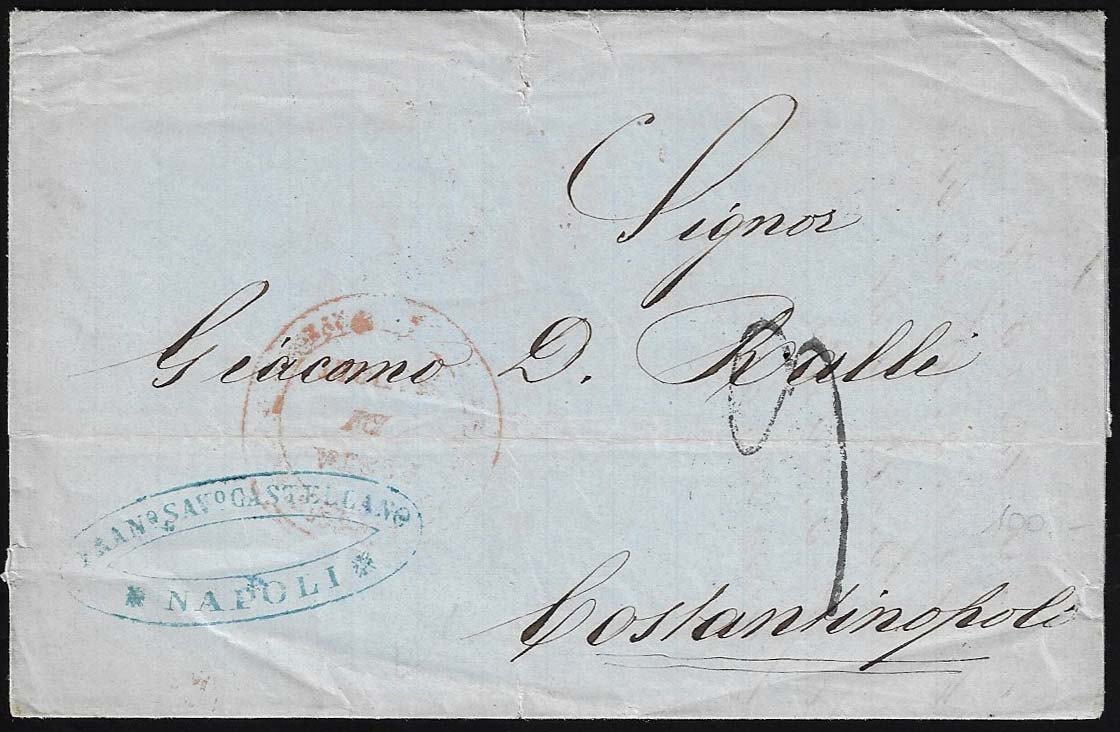 Signor
Giacomo D. Ralli
Costantinopoli
FRANº SAVº CASTELLANO
* NAPOLI *
100.-